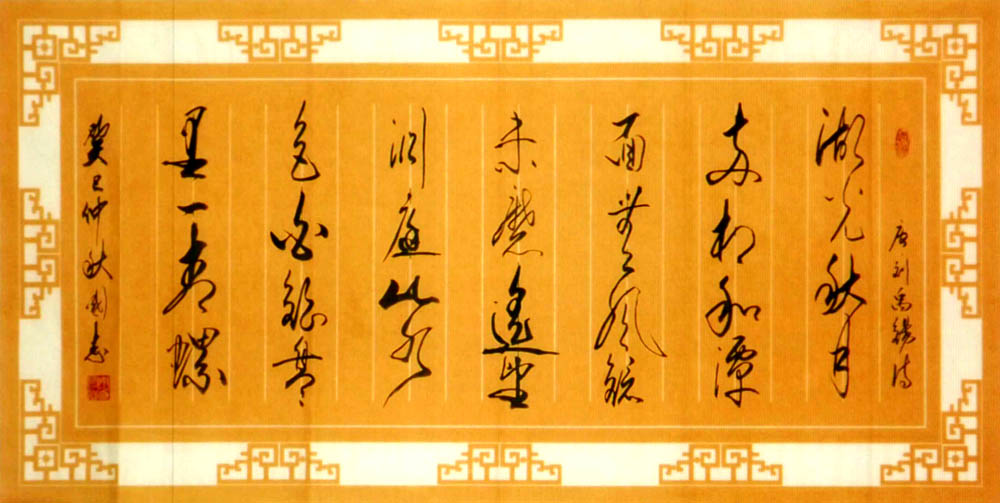 唐刘禹錫诗
湖光秋月
两相和潭
面無风鏡
未磨遙望
洞庭山水
色白銀盤
里一青螺
癸巳仲秋国志